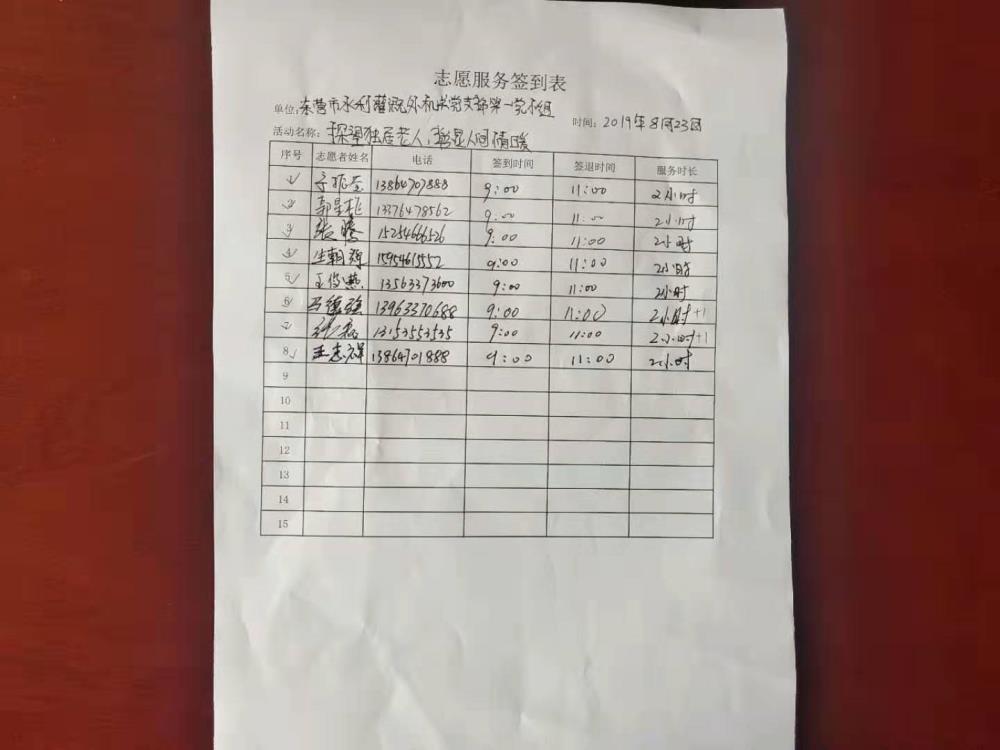 志愿服务签到表
单位: 东营市水利灌溉处机关党支部第一党小组
时间: 2019年8月23日
活动名称: 探望独居老人,彰显人间情暖
序号 志愿者姓名 电话 签到时间 签退时间 服务时长
1 13864707888 9:00 11:00 2小时
2 13376478562 9:00 11:00 2小时
3 张腾 15254666526 9:00 11:00 2小时
4 15954615552 9:00 11:00 2小时
5 王俊燕 13563373600 9:00 11:00 2小时
6 马德强 13963370688 9:00 11:00 2小时+1
7 张磊 13153553535 9:00 11:00 2小时+1
8 王志祥 13864701888 9:00 11:00 2小时
9
10
11
12
13
14
15